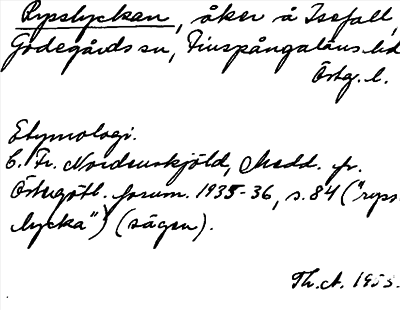 Rysslyckan, åker å Issfall,
Godegårds sn, Finspångaläns hd
Östg. l.
Etymologi.
C. Fr. Nordenskjöld, Medd. fr.
Östergötl. fornm. 1935-36, s. 84 ("ryss-
lycka") (sägen).
Th. A. 1955.